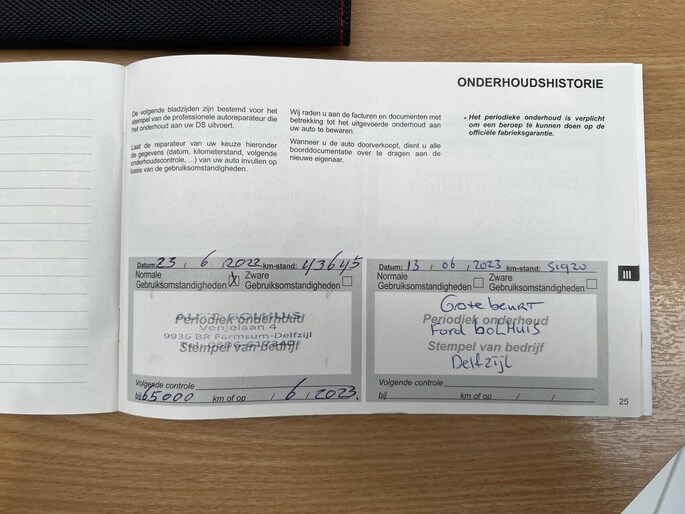 ONDERHOUDSHISTORIE
De volgende bladzijden zijn bestemd voor het
stempel van de professionele autoreparateur die
het onderhoud aan uw DS uitvoert.
Laat de reparateur van uw keuze hieronder
de gegevens (datum, kilometerstand, volgende
onderhoudscontrole, ...) van uw auto invullen op
basis van de gebruiksomstandigheden.
Wij raden u aan de facturen en documenten met
betrekking tot het uitgevoerde onderhoud aan
uw auto te bewaren.
Wanneer u de auto doorverkoopt, dient u alle
boorddocumentatie over te dragen aan de
nieuwe eigenaar.
• Het periodieke onderhoud is verplicht
om een beroep te kunnen doen op de
officiële fabrieksgarantie.
Datum: 23 , 6 , 2022 km-stand: 43645
Normale
Gebruiksomstandigheden X
Zware
Gebruiksomstandigheden
Periodiek onderhoud
Venjelaan 4
9936 BR Farmsum-Delfzijl
Stempel van bedrijf
Volgende controle
bij 65000 km of op / 6 / 2023.
Datum: 13 , 06 , 2023 km-stand: 51920
Normale
Gebruiksomstandigheden
Zware
Gebruiksomstandigheden
Grote beurt
Periodiek onderhoud
Ford bolHuis
Stempel van bedrijf
Delfzijl
Volgende controle
bij km of op / /
III
25